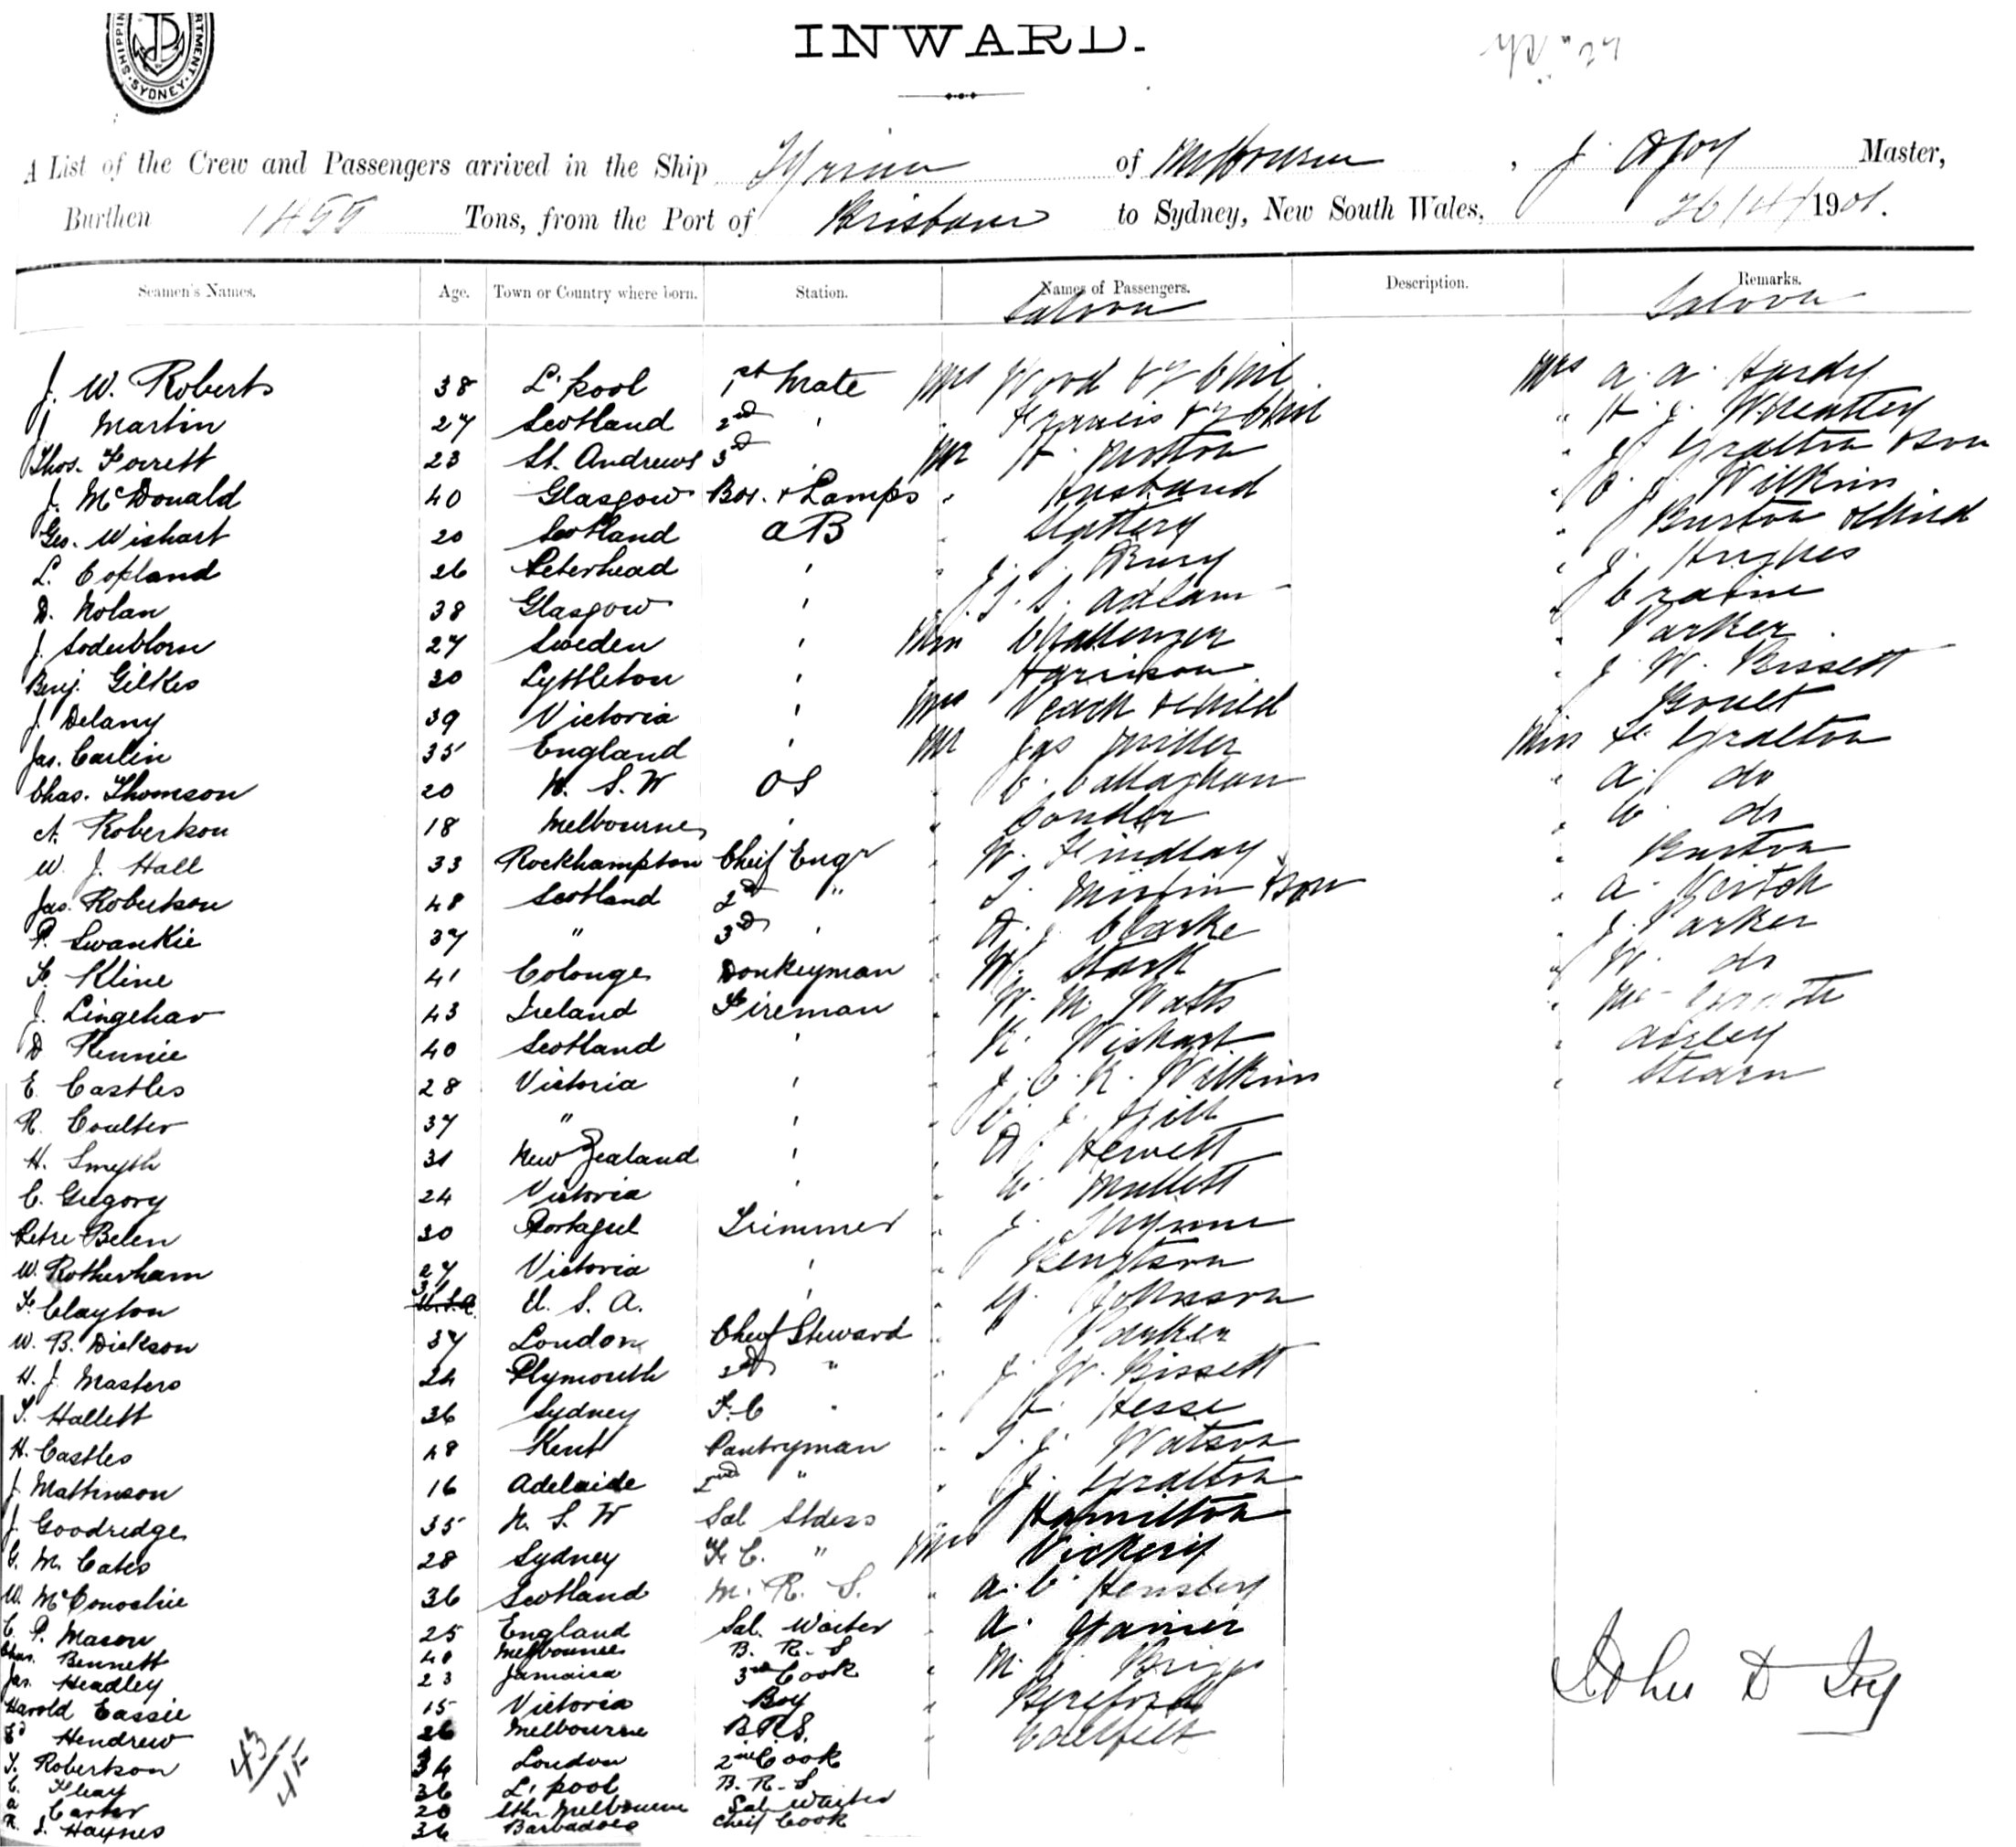 SYDNEY
INWARD.
A List of the Crew and Passengers arrived in the Ship Tyrian of Melbourne, J. Master,
Burthen 1455 Tons, from the Port of Brisbane to Sydney, New South Wales, 26/4/1901.
Seamen's Names. Age. Town or Country where born. Station. Names of Passengers. Description. Remarks.
Saloon Saloon
J. W. Roberts 38 L'pool 1st Mate Mrs Wood & 2 Chil Mrs A. A. Hardy
J Martin 27 Scotland 2nd ' " Francis & 2 Chil " H. J. Wheatley
Thos. Forrett 23 St. Andrews 3rd ' Mr H. " J Gralton & Son
J. McDonald 40 Glasgow Bos. & Lamps " Husband " C. J. Wilkins
Geo. Wishart 20 Scotland AB " Slattery " Burton & Child
L. Copland 26 Peterhead ' " J. S. " J. Hughes
D. Nolan 38 Glasgow ' " J. S. Adlam "
J. Soderblom 27 Sweden ' Miss Challenger " Parker
Benj. Gilkes 30 Lyttleton ' " Harrison " J W. Bissett
J. Delany 39 Victoria ' Mrs Veach & Child " Goult
Jas. Carlin 35 England ' Mr Jas Miller Miss F. Gralton
Chas. Thomson 20 N. S. W OS " C. Callaghan " A. do
A. Robertson 18 Melbourne ' " " C. do
W. J. Hall 33 Rockhampton Cheif Engr " W. Findlay " Burton
Jas. Robertson 48 Scotland 2nd " " T. & Son " A. Veitch
P. Swankie 37 " 3rd ' " A. J Clarke " J. Parker
F. Kline 41 Colonge Donkeyman " W. Stark " W. do
J. Lingehav 43 Ireland Fireman " W. M. Watts "
D Rennie 40 Scotland ' " R. Wishart " Airley
E Castles 28 Victoria ' " J. C. R. Wilkins " Stearn
R. Coulter 37 " ' " C. J. Gill
H. Smyth 31 New Zealand ' " A. Hewett
C. Gregory 24 Victoria ' " C. Mullett
Petre Belen 30 Portagul Trimmer " J. Thynne
W. Rotherham 27 Victoria ' " Bengtson
F. Clayton 31 U. S. A. ' " G. Johnson
W. B. Dickson 37 London Cheif Steward " Parker
H. J. Masters 24 Plymouth 2nd " " J. W. Bissett
T. Hallett 36 Sydney F. C " " H. Hesse
H. Castles 48 Kent Pantryman " T. J. Watson
J. Mattinson 16 Adelaide 2nd " " J. Gralton
J. Goodredge 35 N. S. W Sal Stdess " Hamilton
G. M. Cates 28 Sydney F. C. " Mrs Vickery
W. McConochie 36 Scotland M. R. S. " A. C. Hensley
C. P. Mason 25 England Sal. Waiter " A.
Chas. Bennett 40 Melbourne B. R. S " M. Briggs
Jas. Headley 23 Jamaica 3rd Cook "
Harold Eassie 15 Victoria Boy "
Ed Hendrew 26 Melbourne B.R.S.
T. Robertson 34 London 2nd Cook
C. Fleay 36 L'pool B. R. S
A Carter 20 Sth. Melbourne Sal. Waiter
R. J. Haynes 36 Barbadoes Cheif Cook
43/45
John D Joy